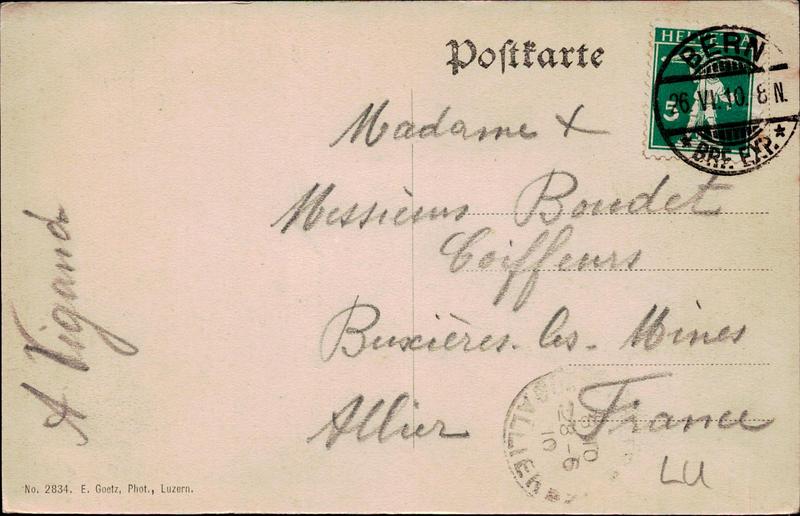 Postkarte
HELVETIA
5
BERN
26.VI.10. 8 N.
* BRF. EXP. *
Madame &
Messieurs Boudet
Coiffeurs
Buxières-les-Mines
Allier France
A Vigand
28-6
10
ALLIER
LU
No. 2834. E. Goetz, Phot., Luzern.